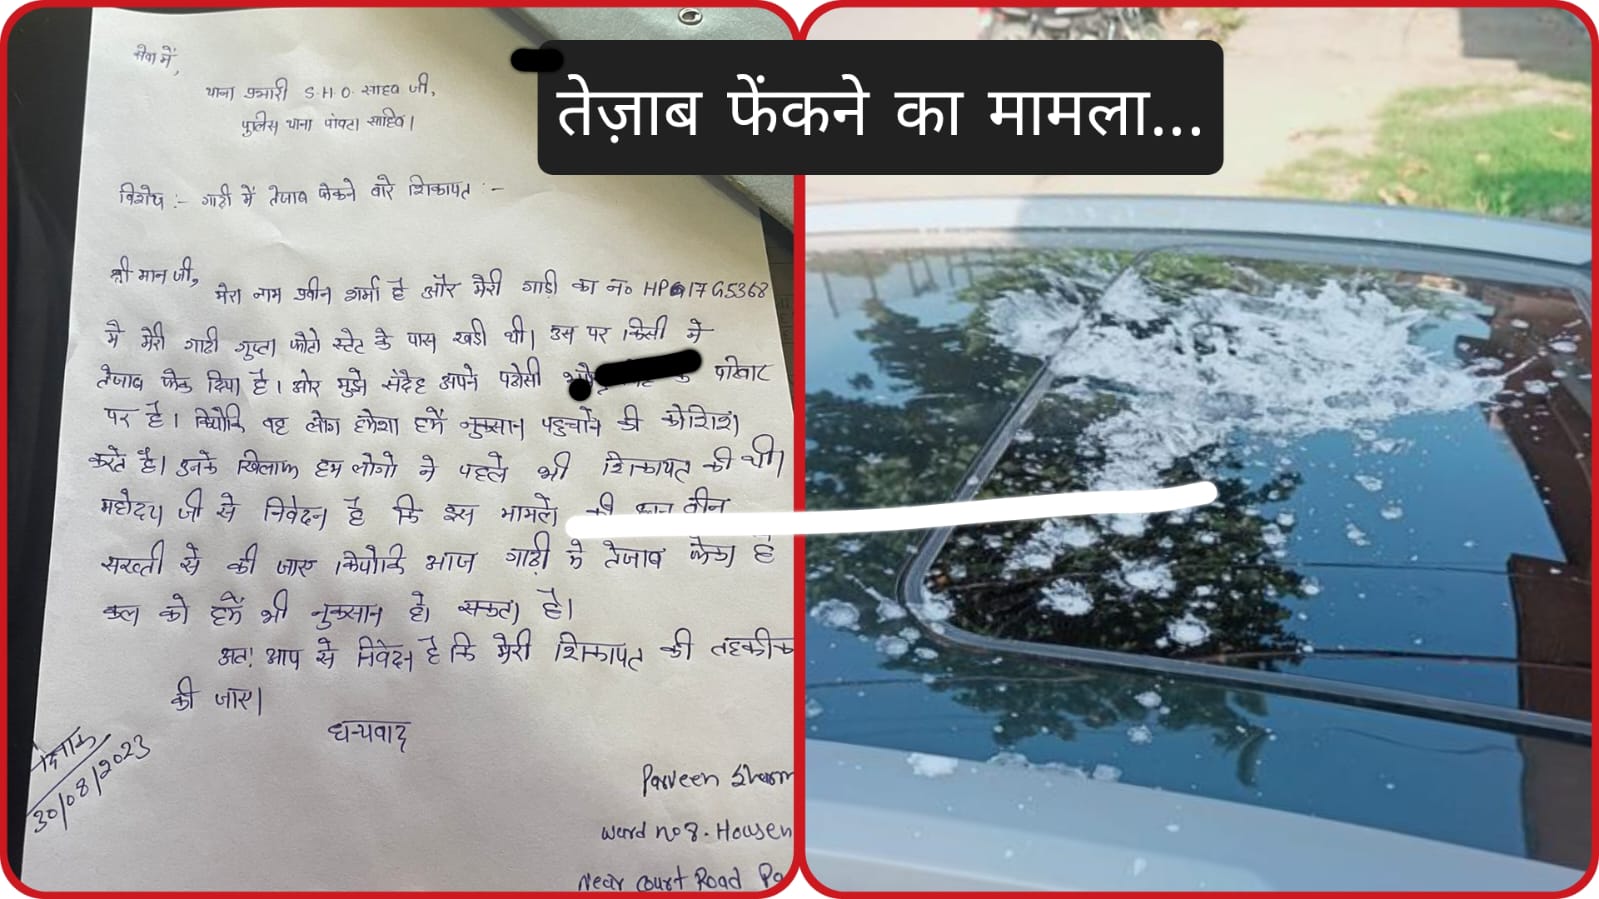 तेज़ाब फेंकने का मामला...
सेवा में,
थाना प्रभारी S.H.O. साहब जी,
पुलिस थाना पांवटा साहिब।
विशेष :- गाडी में तेजाब फेकने बारे शिकायत :-
श्री मान जी,
मेरा नाम प्रवीन शर्मा है और मेरी गाड़ी का न० HP17G5368
मै मेरी गाडी गुप्ता फोटो स्टेट के पास खडी थी। उस पर किसी ने
तेजाब फेक दिया है। और मुझे संदेह अपने पडोसी परिवार
पर है। क्योकि वह लोग हमेशा हमें नुकसान पहुचाने की कोशिश
करते है। इनके खिलाफ हम लोगो ने पहले भी शिकायत की थी।
महोदय जी से निवेदन है कि इस मामले की छान बीन
सख्ती से की जाए क्योकि आज गाडी मे तेजाब फेका है
कल को हमें भी नुकसान हो सकता है।
अतः आप से निवेदन है कि मेरी शिकायत की तहकीक
की जाए।
धन्यवाद
दिनांक
30/08/2023
Parveen Sharm
ward no 8. Housen
Near court Road Pa